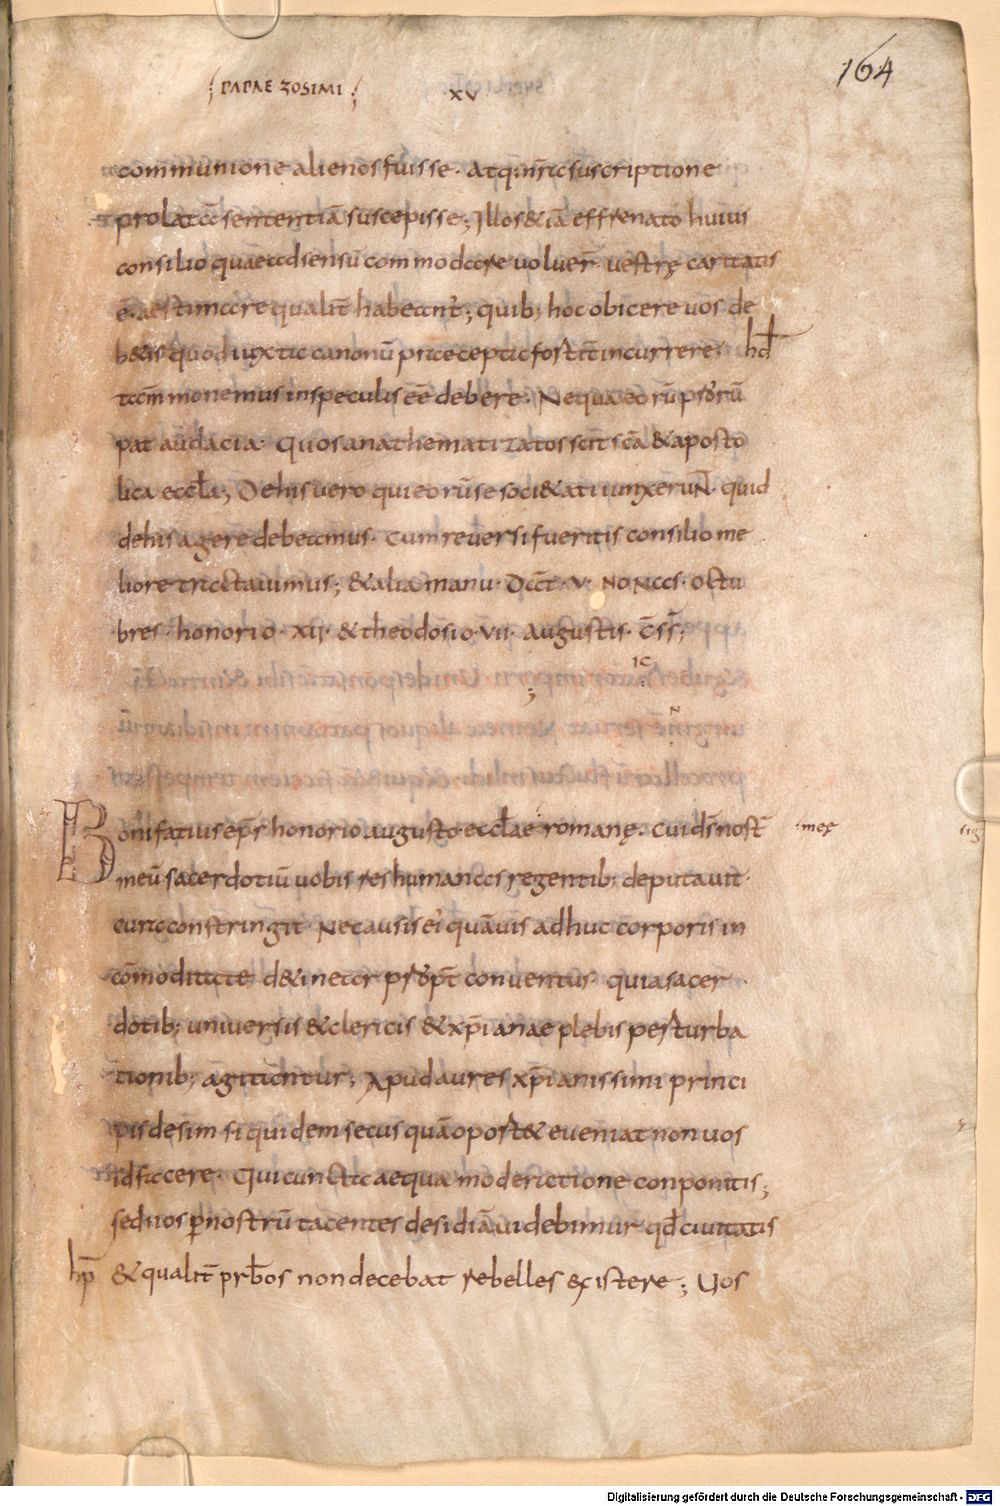 PAPAE ZOSIMI
XV
164
communione alienos fuisse. Atq; nr̃a suscriptione
prolatã sententiã suscepisse; Illos & iã effrenato huius
consilio quae adsensũ commodare voluer̃ vestrę caritatis
ẽ. aestimare qualit̃ habeant̃; quib; hoc obicere vos de
b&is quod iuxta canonũ praecepta fostit̃ incurrere. hd̃
ammonemus in speculis eẽ debere. Ne qua eorũ prorũ
pat audacia. Quos anathematizatos scit sc̃a & aposto
lica eccl̃a; De his vero qui eorũ se soci&ati iunxeruñ. quid
de his agere debeamus. Cum reversi fueritis consilio me
liore tractavimus; & alia manu. Dat̃. V. NONas. octu
bres. honorio. XII. & theodosio. VII. Augustis. C̃SS̃;
Bonifatius ep̃s honorio augusto. eccl̃ae romanę. Cui d̃s nost̃
meę
meũ sacerdotiũ vobis res humanas regentib; deputavit.
cura constringit. Ne causis ei quãvis adhuc corporis in
cõmoditate d&inear propt̃ conventus. quia sacer
dotib; universis & clericis & xp̃ianae plebis perturba
tionib; agitantur; Apud aures xp̃ianissimi princi
pis desim si quidem secus quã oport& eveniat non vos
id facere. Qui cuncta aequa moderatione conponitis;
sed nos p̃ nostrũ tacentes desidiã videbimur qd̃ civitatis
hp̃ & qualit̃ prb̃os non decebat rebelles existere; Vos
Digitalisierung gefördert durch die Deutsche Forschungsgemeinschaft - DFG